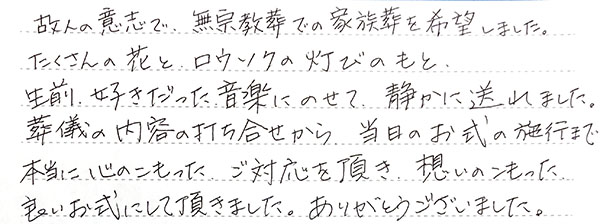 故人の意志で、無宗教葬での家族葬を希望しました。
たくさんの花と、ロウソクの灯びのもと、
生前、好きだった音楽にのせて、静かに送れました。
葬儀の内容の打ち合せから、当日のお式の施行まで
本当に心のこもった、ご対応を頂き、想いのこもった、
良いお式にして頂きました。ありがとうございました。